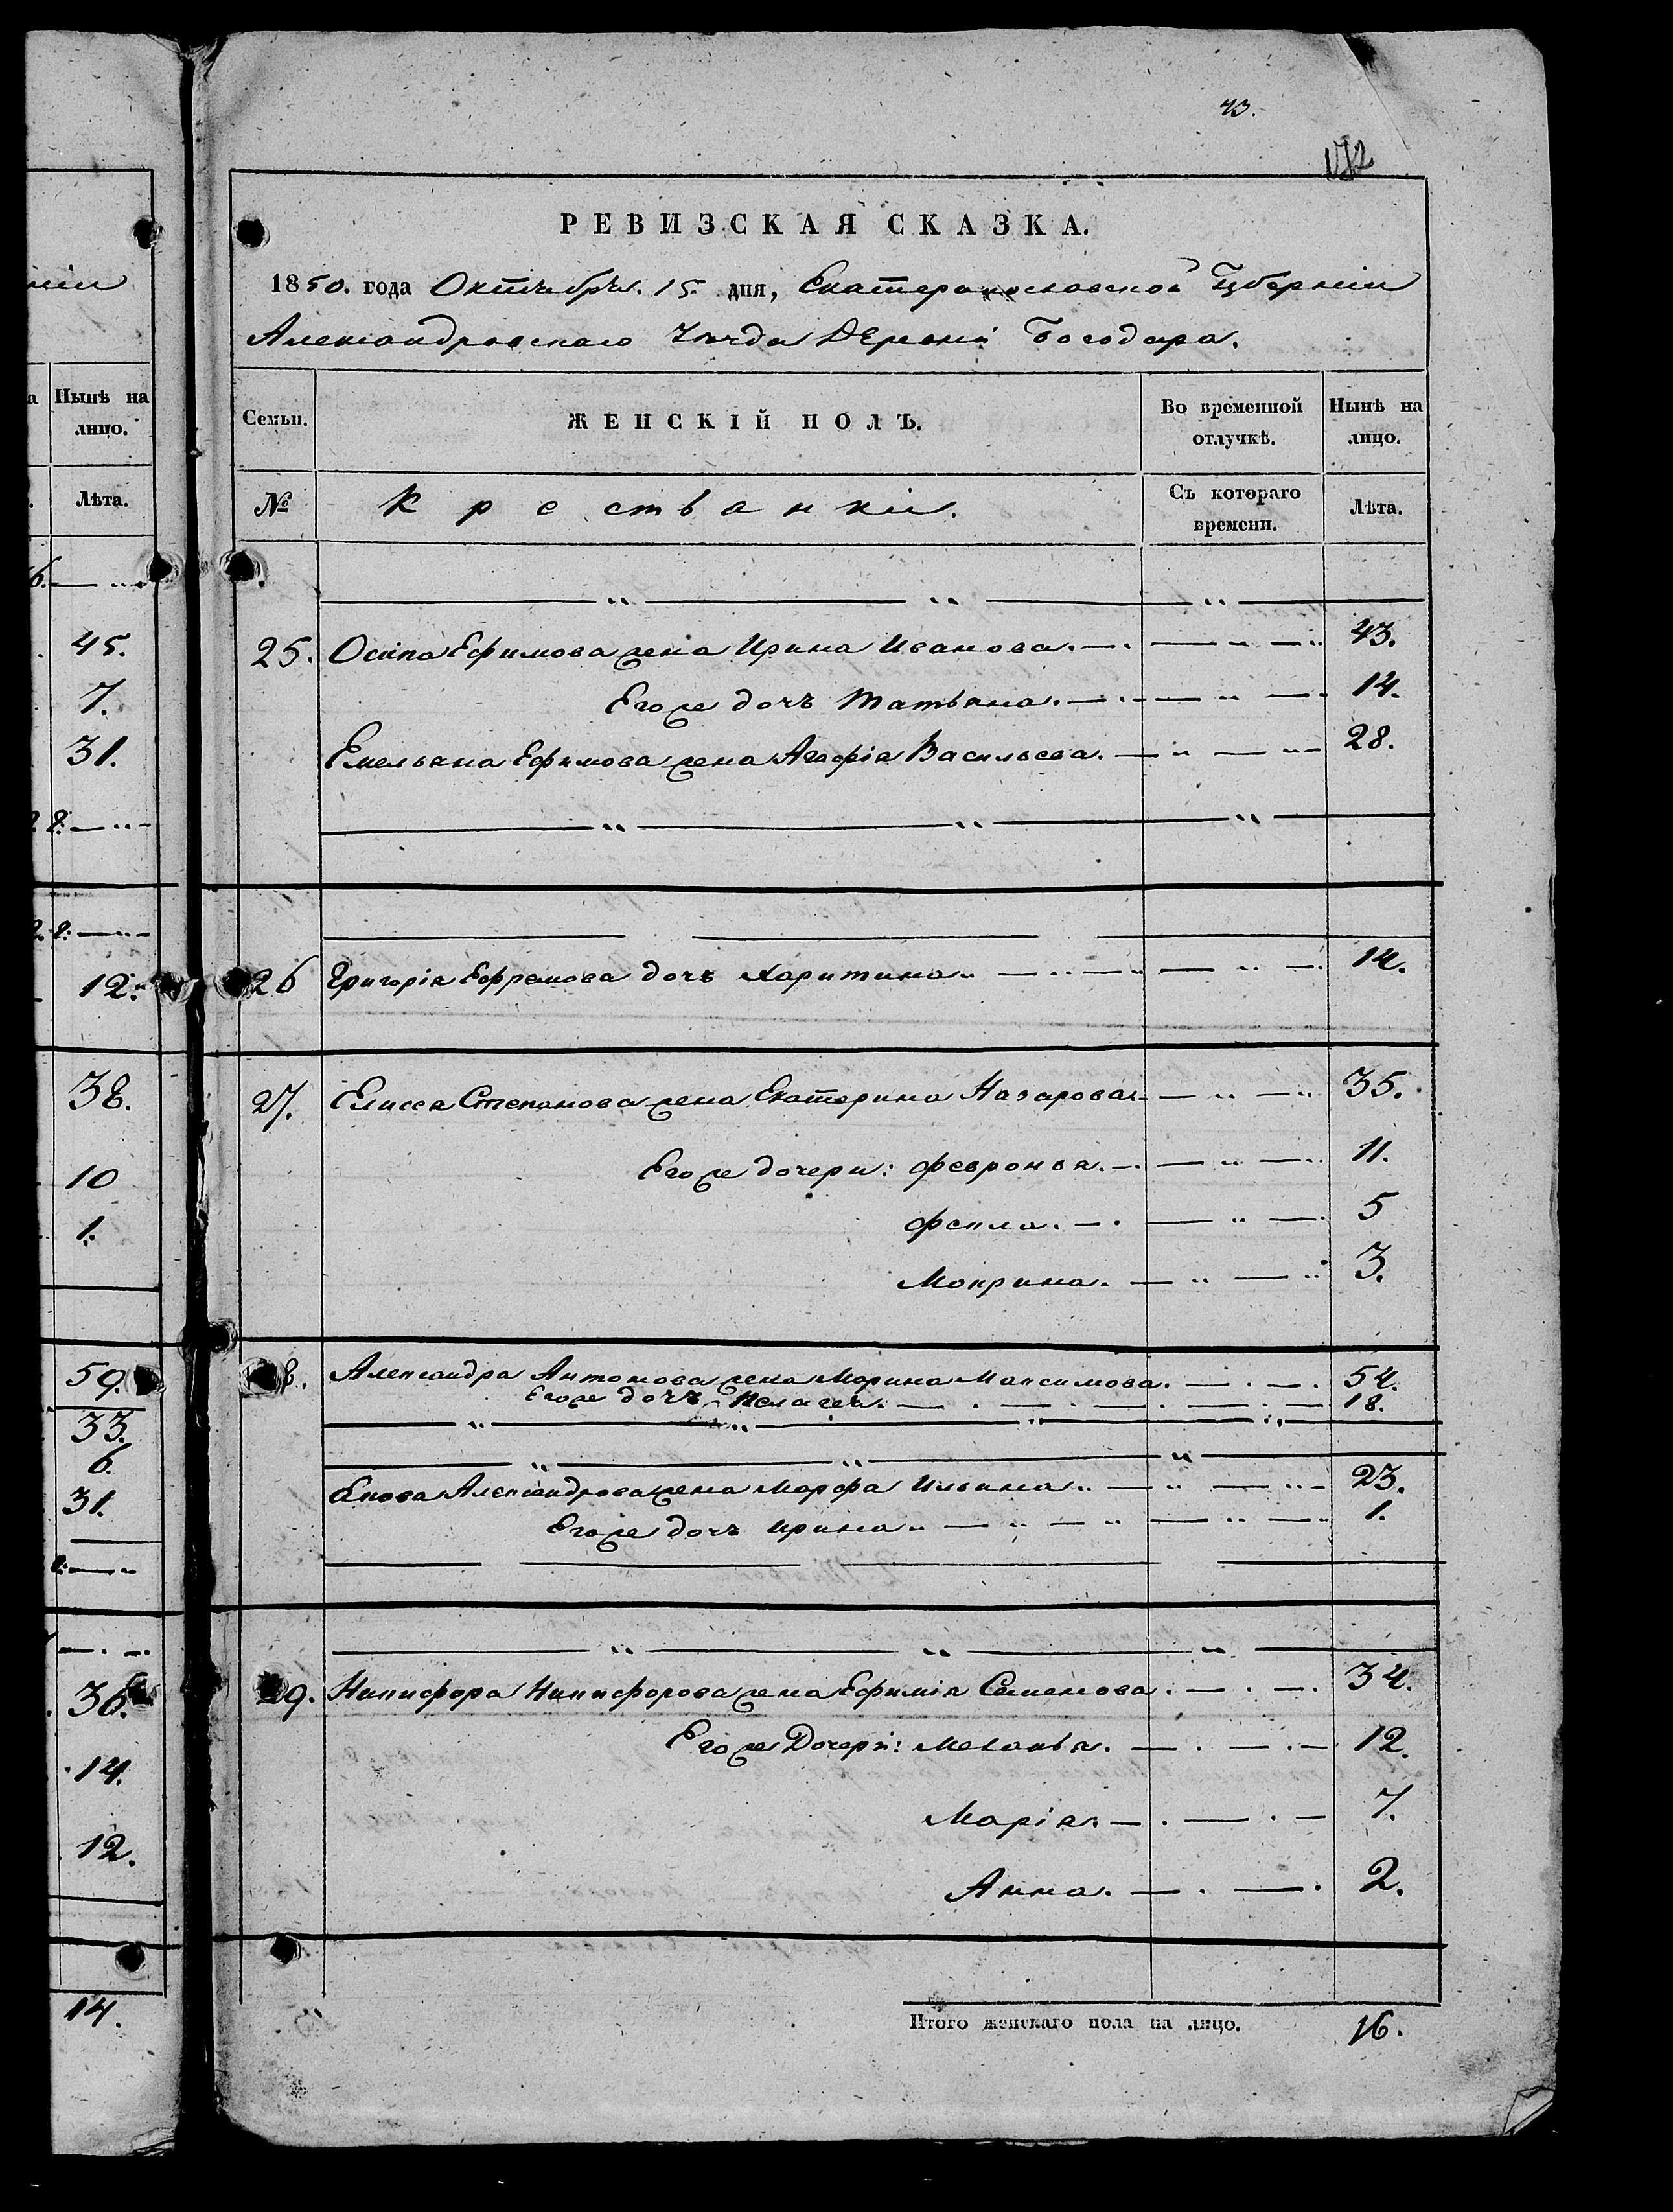 43.
172
РЕВИЗСКАЯ СКАЗКА.
1850. года Октября. 15. дня, Екатеринославской Губерніи
Александровскаго Уѣзда Деревни Богодара.
ніи
Нынѣ на лицо.
Лѣта.
Семьи.
ЖЕНСКІЙ ПОЛЪ.
Во временной отлучкѣ.
Нынѣ на лицо.
№
Крестьянки.
Съ котораго времени.
Лѣта.
45.
7.
31.
12.
38.
10
1.
59.
33.
6.
31.
36.
14.
12.
14.
25. Осипа Ефимова жена Ирина Иванова. 43.
Его же дочь Татьяна. 14.
Емельяна Ефимова жена Агафія Васильева. 28.
26 Григорія Ефремова дочь Харитина 14.
27. Елисея Степанова жена Екатерина Назарова 35.
Его же дочери: Февронья. 11.
Фекла. 5
Мокрина. 3.
8. Александра Антонова жена Марина Максимова. 54.
Его же дочь Пелагея. 18.
Якова Александрова жена Марфа Ильина 23.
Его же дочь Ирина 1.
29. Никифора Никифорова жена Ефимія Семенова. 34.
Его же Дочери: Меланья. 12.
Марія. 7.
Анна. 2.
Итого женскаго пола на лицо. 16.